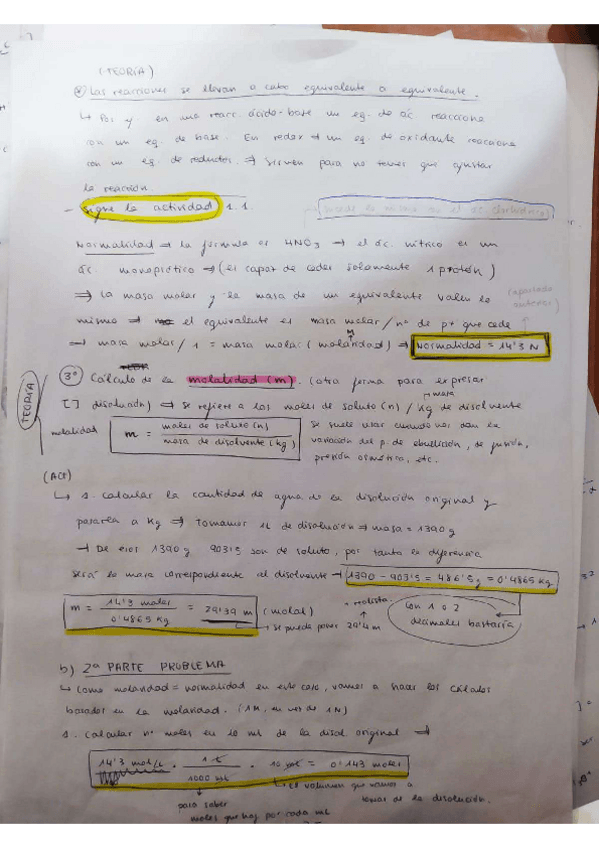 (TEORÍA)
* Las reacciones se llevan a cabo equivalente a equivalente.
↳ Pos y en una reacc. ácido-base un eq. de ác reacciona
con un eq. de base. En redox → un eq. de oxidante reacciona
con un eq. de reductor. ⇒ Sirven para no tener que ajustar
la reacción.
- Sigue la actividad 1.1.
Normalidad ⇒ la fórmula es HNO3 → el ác. nítrico es un
ác. monoprótico ⇒ (es capaz de ceder solamente 1 protón)
⇒ la masa molar y la masa de un equivalente valen lo
(apartado anterior)
mismo ⇒ el equivalente es masa molar / nº de p+ que cede
→ masa molar / 1 = masa molar (molaridad) ⇒ Normalidad = 14'3 N
3º Cálculo de la molalidad (m). (otra forma para expresar
TEORÍA
[ ] disolución) ⇒ se refiere a los moles de soluto (n) / kg de disolvente
masa
molalidad m = moles de soluto (n) / masa de disolvente (kg)
Se suele usar cuando nos dan la
variación del p. de ebullición, de fusión,
presión osmótica, etc.
(ACT)
↳ 1. Calcular la cantidad de agua de la disolución original y
pasarla a Kg ⇒ Tomamos 1L de disolución ⇒ masa = 1390 g
→ De esos 1390 g 903'5 son de soluto, por tanto la diferencia
será la masa correspondiente al disolvente → 1390 - 903'5 = 486'5 g = 0'4865 Kg
m = 14'3 moles / 0'4865 Kg = 29'39 m (molal)
↳ se puede poner 29'4 m
con 1 o 2
decimales bastaría
b) 2ª PARTE PROBLEMA
↳ Como molaridad = normalidad en este caso, vamos a hacer los cálculos
basados en la molaridad. (1M, en vez de 1N)
1. Calcular nº moles en 10 mL de la disol original ⇒
14'3 mol/L · 1 L / 1000 mL · 10 mL = 0'143 moles
↳ El volumen que vamos a
tomar de la disolución.
para saber
moles que hay por cada mL